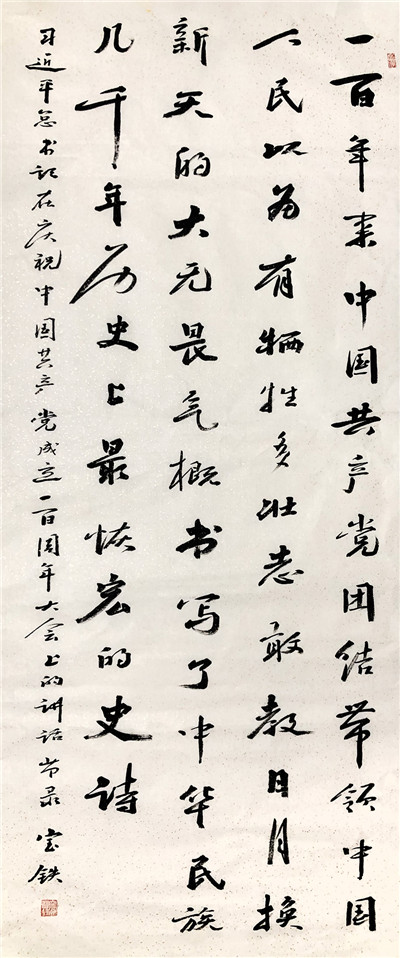 一百年来中国共产党团结带领中国
人民以为有牺牲多壮志敢教日月换
新天的大无畏气概书写了中华民族
几千年历史上最恢宏的史诗
习近平总书记在庆祝中国共产党成立一百周年大会上的讲话节录 宝铁